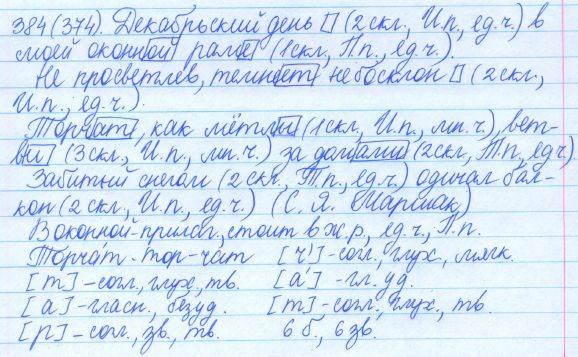 384(374). Декабрьский день (2скл., И.п., ед.ч.) в
моей оконной раме (1скл., П.п., ед.ч.).
Не просветлев, темнеет небосклон (2скл.,
И.п., ед.ч.).
Торчат, как мётлы (1скл., И.п., мн.ч.), вет-
ви (3скл., И.п., мн.ч.) за домами (2скл., Т.п., ед.ч)
Забитый снегом (2скл., Т.п., ед.ч) одичал бал-
кон (2 скл., И.п., ед.ч.) (С. Я. Маршак)
В оконной-прилаг., стоит в ж.р., ед.ч., П.п.
Торча́т - тор-чат [ч']-согл., глух., мягк.
[т]-согл., глух., тв. [а́]-гл. уд.
[а]-гласн., безуд. [т]-согл., глух., тв.
[р]-согл., зв., тв. 6 б., 6 зв.